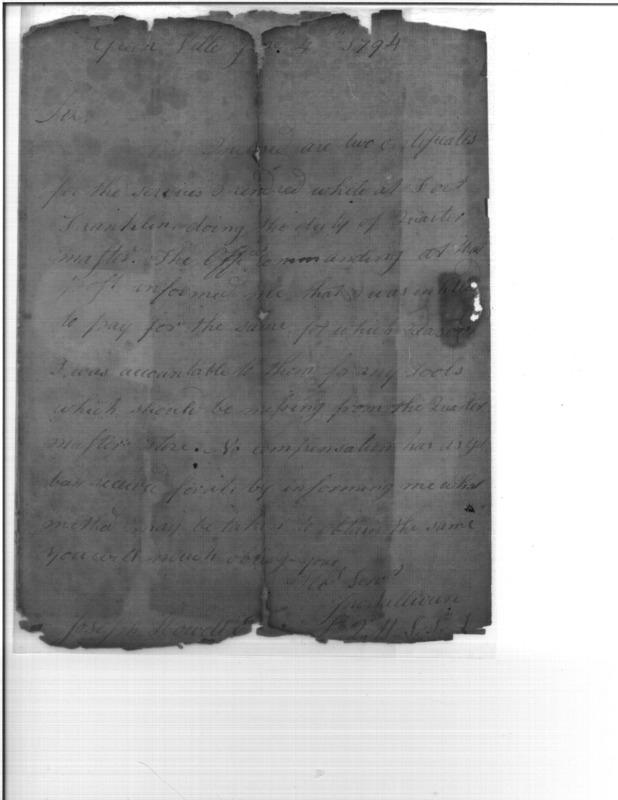 Green Ville 4th 1794
Sir,
Inclosed are two Certificates
for the services I rendred while at Fort
Franklin doing the duty of Quarter
master. The Offr. Commanding at that
post informed me that I was intitled
to pay for the same, for which reason
I was accountable to them for any tools
which should be missing from the Quarter
masters store. No compensation has as yet
been received for it. by informing me what
method may be taken to obtain the same
you will much oblige your
Hbl. Servt.
Joseph Howell